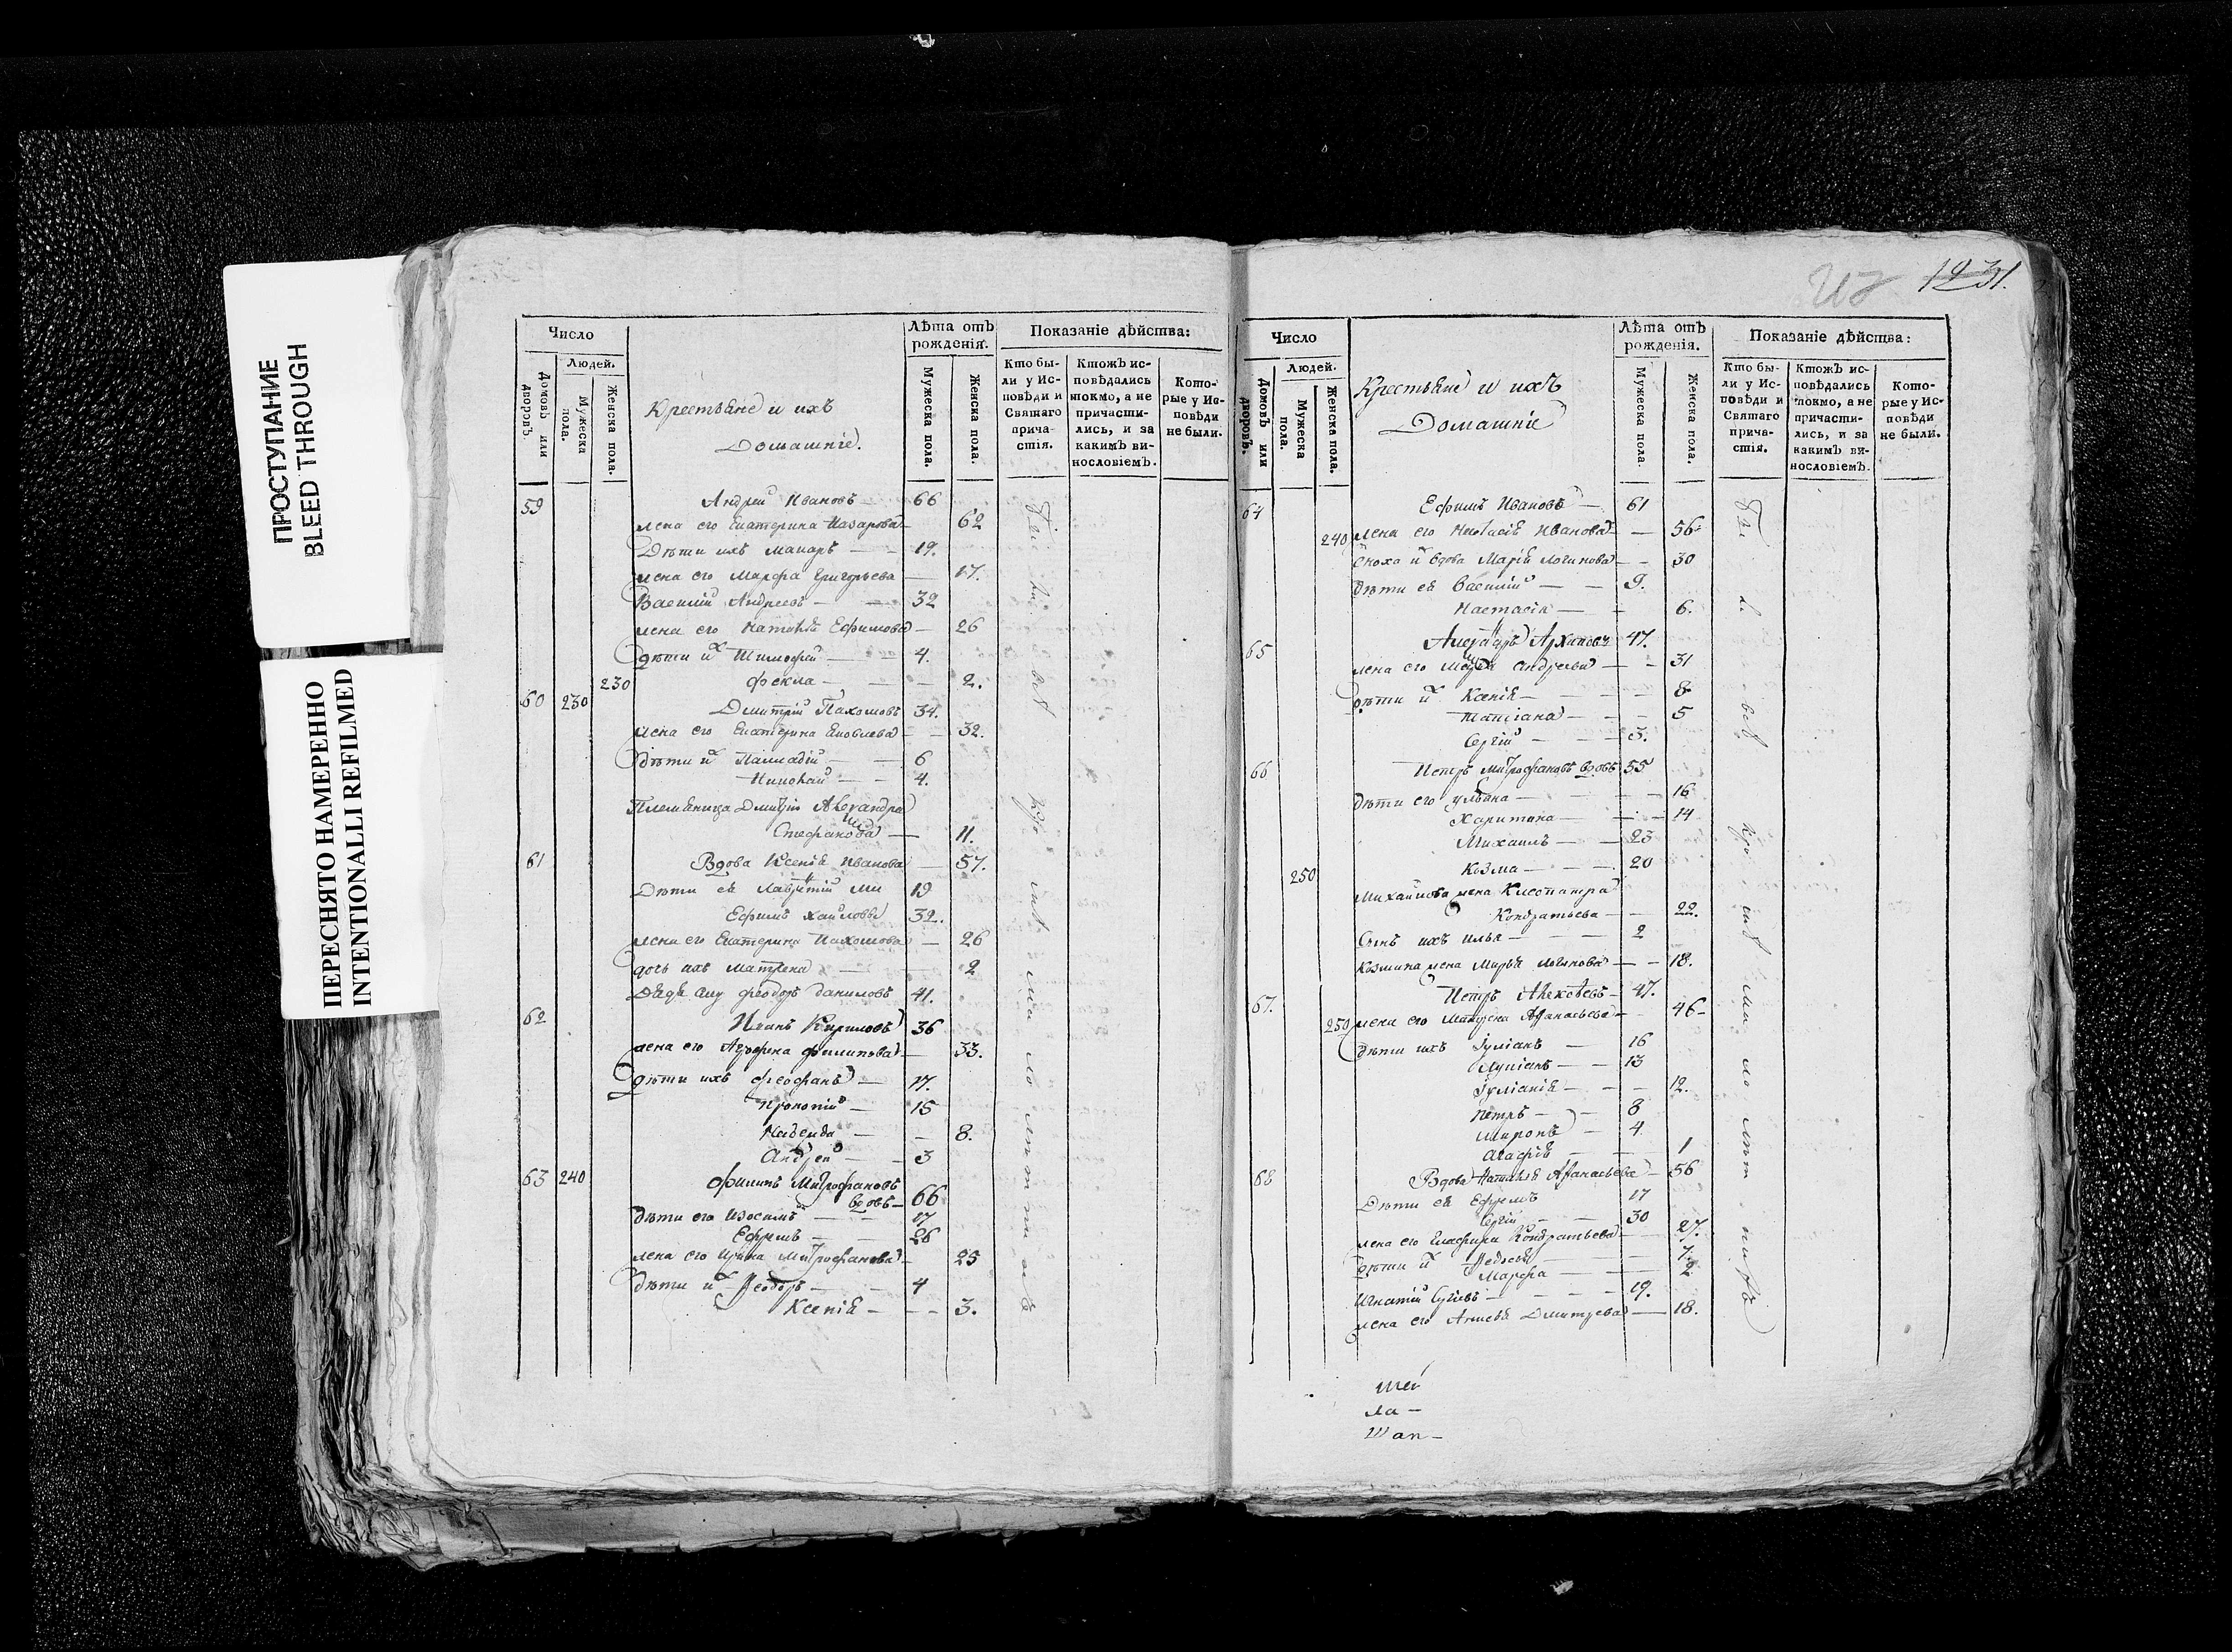 ПРОСТУПАНИЕ
BLEED THROUGH
ПЕРЕСНЯТО НАМЕРЕННО
INTENTIONALLI REFILMED
Число
Людей.
Домовъ или дворовъ.
Мужеска пола.
Женска пола.
Крестьяне и ихъ
Домашніе.
Лѣта отъ рожденія.
Мужеска пола.
Женска пола.
Показаніе дѣйства:
Кто были у Исповѣди и Святаго причастія.
Ктожъ исповѣдались токмо, а не причастились, и за какимъ винословіемъ.
Которые у Исповѣди не были.
59 Андрей Ивановъ — 66
жена его Екатерина Назарова — 62
Дѣти ихъ Макаръ — 19.
жена его Марфа Григорьева — 17.
Василій Андреевъ — 32
жена его Наталья Ефимова — 26
дѣти их Тимофей — 4.
230 Фекла — 2.
60 230 Дмитрій Пахомовъ 34.
жена его Екатерина Яковлева — 32.
дѣти их Палладій — 6
Николай — 4.
Племяница Дмитрію Александра
Стефанова — 11.
61 Вдова Ксенія Иванова — 57.
Дѣти ея Лаврентій Ми 19
Ефимъ хайловы 32.
жена его Екатерина Пахомова — 26
дочь ихъ Матрена — 2
Дядя ему Феодоръ Даниловъ 41.
62 Иванъ Кириловъ 36
жена его Агрофена Филипова — 33.
дѣти ихъ Феофанъ — 17.
Прокопій — 15
Надежда — 8.
Андрей — 3
63 240 Филипъ Митрофановъ
вдовъ — 66
дѣти его Изосимъ — 17
Ефремъ — 26
жена его Ирина Митрофанова — 25
дѣти их Феодоръ — 4
Ксенія — 3.
1231.
Число
Людей.
Домовъ или дворовъ.
Мужеска пола.
Женска пола.
Крестьяне и ихъ
Домашніе
Лѣта отъ рожденія.
Мужеска пола.
Женска пола.
Показаніе дѣйства:
Кто были у Исповѣди и Святаго причастія.
Ктожъ исповѣдались токмо, а не причастились, и за какимъ винословіемъ.
Которые у Исповѣди не были.
64 Ефимъ Ивановъ — 61
240 жена его Настасія Иванова — 56
сноха их вдова Марія Логинова — 30
дѣти ея Василій — 9.
Настасія — 6.
65 Архиповъ 47.
жена его Андреева — 31
дѣти их Ксенія — 8
Татіана — 5
Сергій — 3.
66 Петръ Митрофановъ вдовъ 55
дѣти его Ульяна — 16
Харитина — 14
Михаилъ — 23
250 Козма — 20
Михайлова жена Клеопатра
Кондратьева — 22.
Сынъ ихъ Илья — 2
Козмина жена Марья Логинова — 18.
67. Петръ Алексѣевъ — 47.
250 жена его Матрена Афанасьева — 46
дѣти ихъ Іуліанъ — 16
Лупіанъ — 13
Іуліанія — 12.
Петръ — 8
Миронъ — 4
Агафія — 1
68 Вдова Наталья Афанасьева — 56
Дѣти ея Ефремъ 17
Сергій — 30
жена его Кондратьева — 27.
дѣти их Федосья — 7.
Марфа — 2
Игнатій Сергѣевъ — 19.
жена его Дмитрева — 18.
ла —